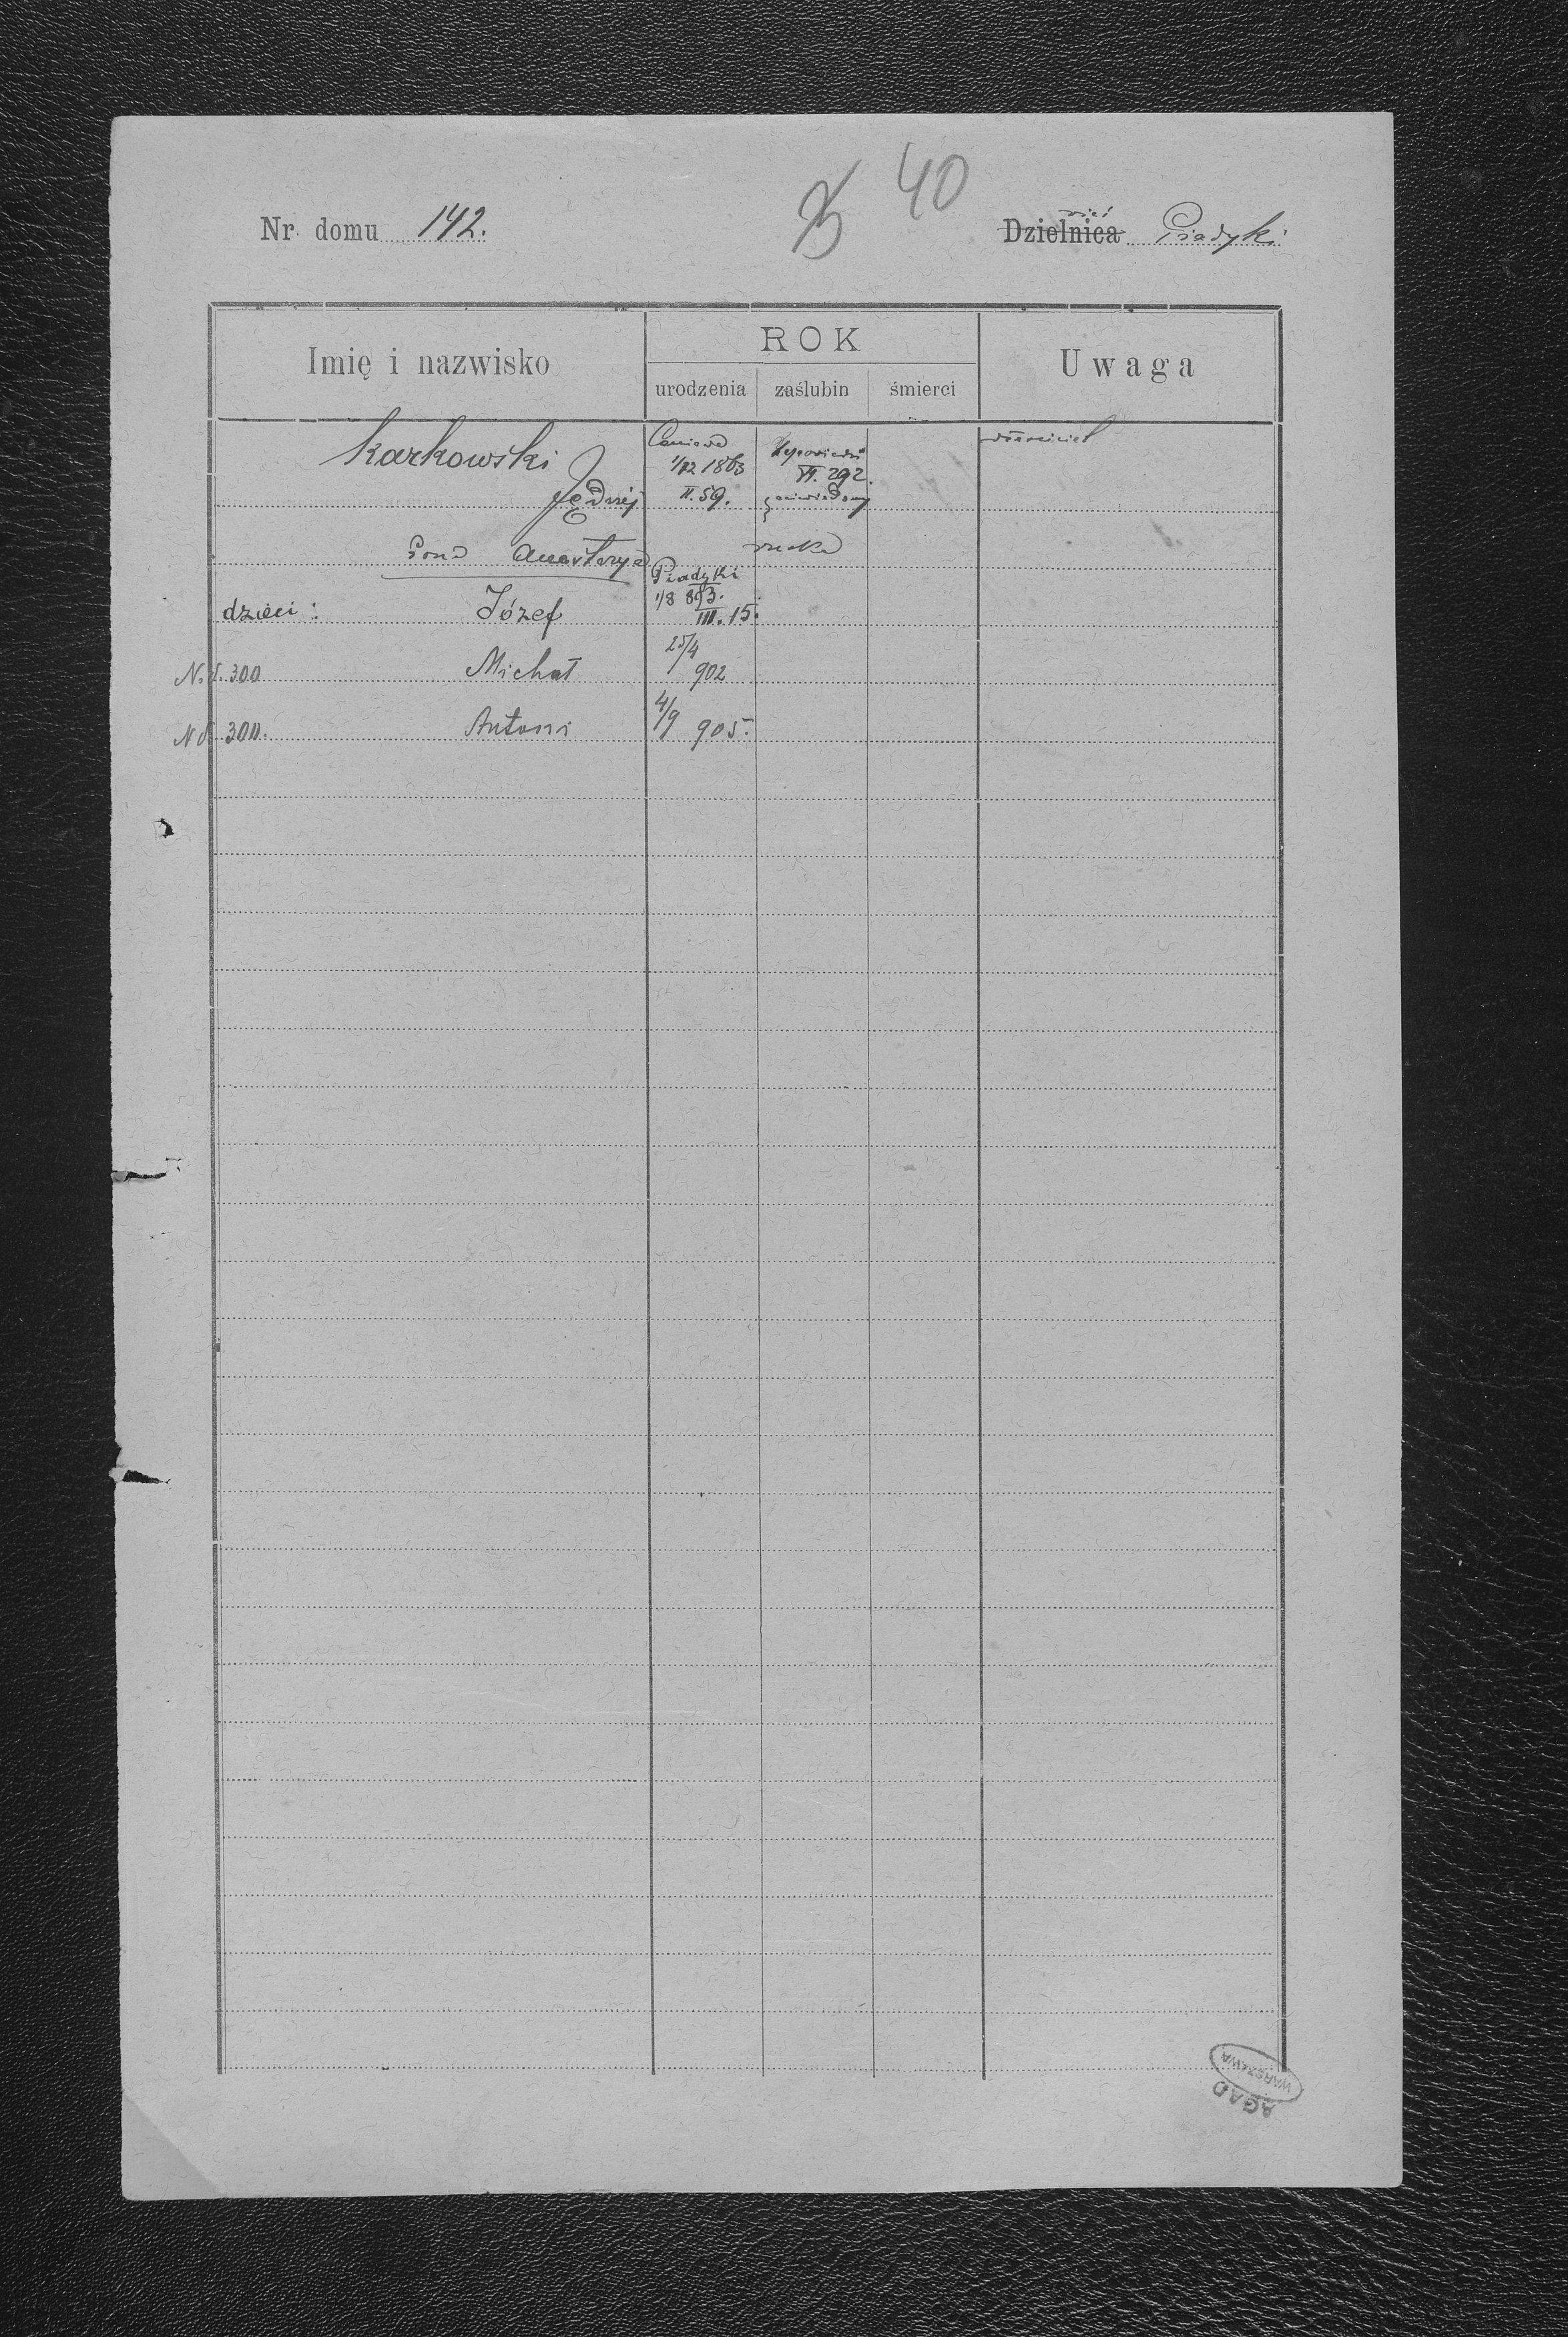 40
Nr. domu 142.
wieś
Dzielnica Piadyki
Imię i nazwisko
ROK
urodzenia zaślubin śmierci
Uwaga
Karkowski
Jędrzej
1/12 1863
II. 59.
Zapowiedzi
VI. 292.
włościciel
żona Anastazya
dzieci: Józef
Piadyki
1/8 893.
III. 15.
N. d. 300 Michał 25/4 902
N d 300. Antoni 4/9 905.
AGAD
WARSZAWA